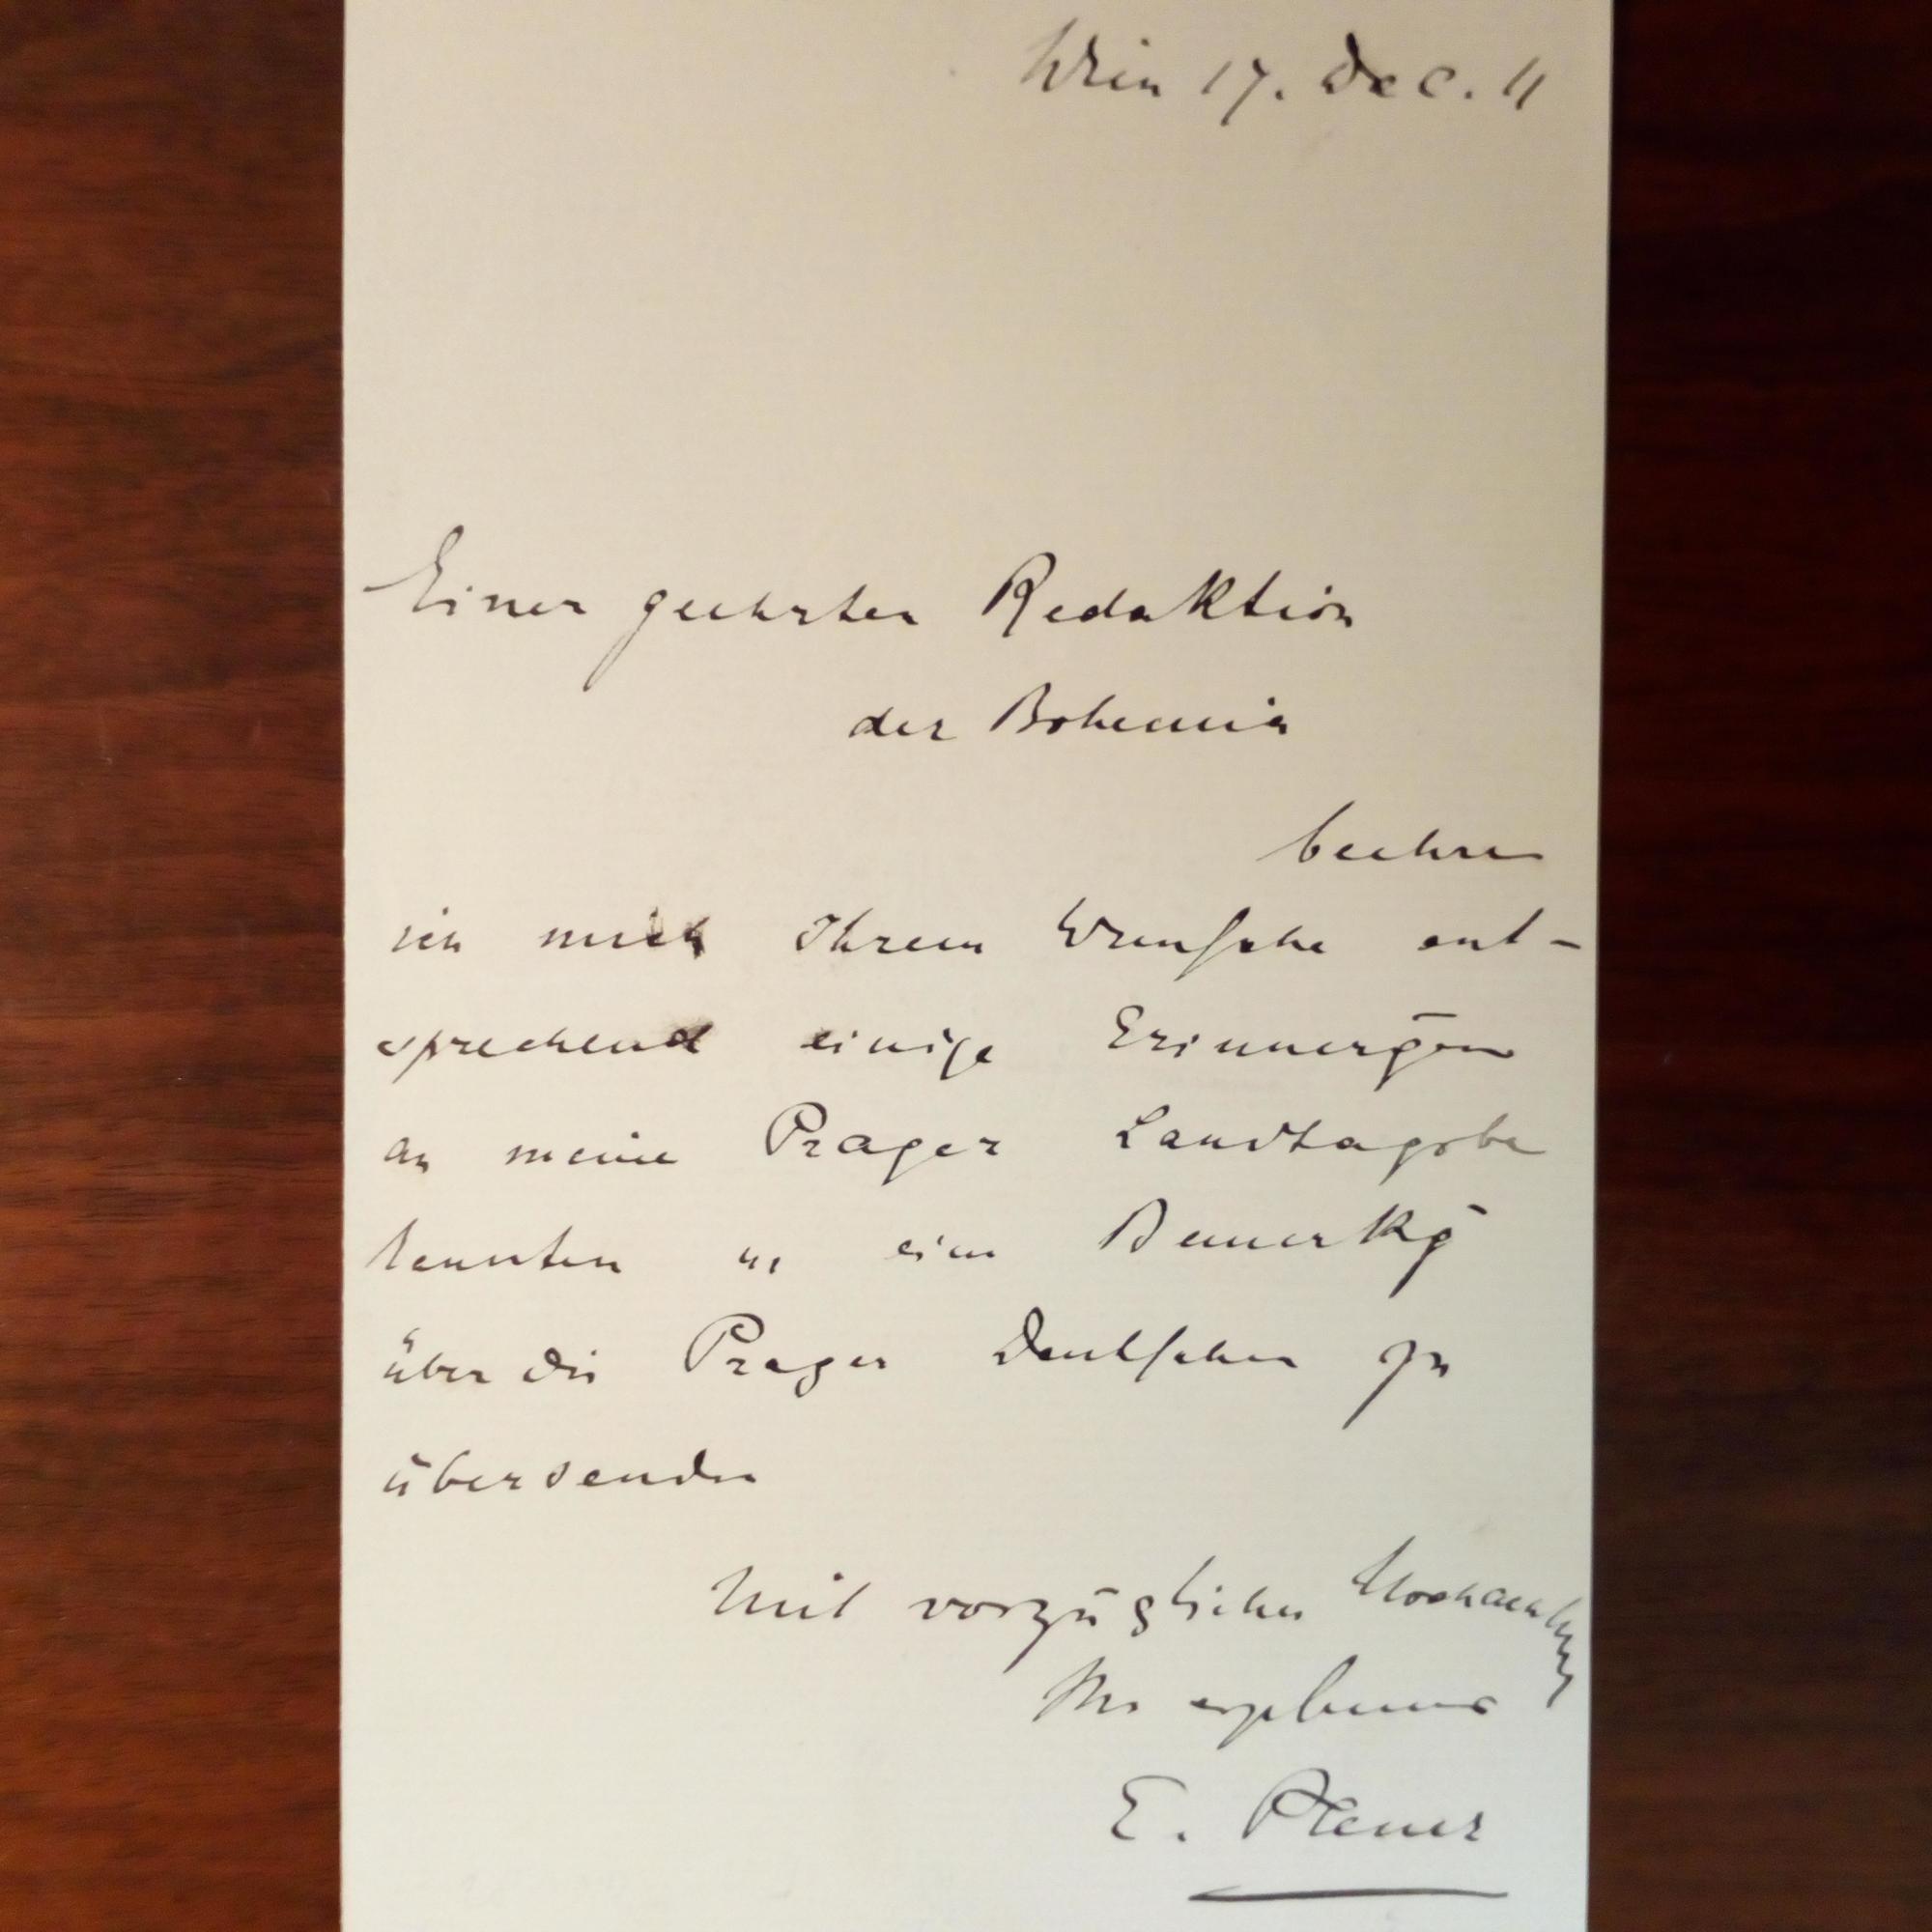 Wien 17. Dec. 11
Einer geehrten Redaktion
der Bohemia
beehre
ich mich Ihrem Wunsche ent-
sprechend einige Erinnergen
an meine Prager Landtagsbe
kannten u eine Bemerkg
über die Prager Deutschen zu
übersenden
Mit vorzüglicher Hochachtung
Ihr ergebener
E. Plener